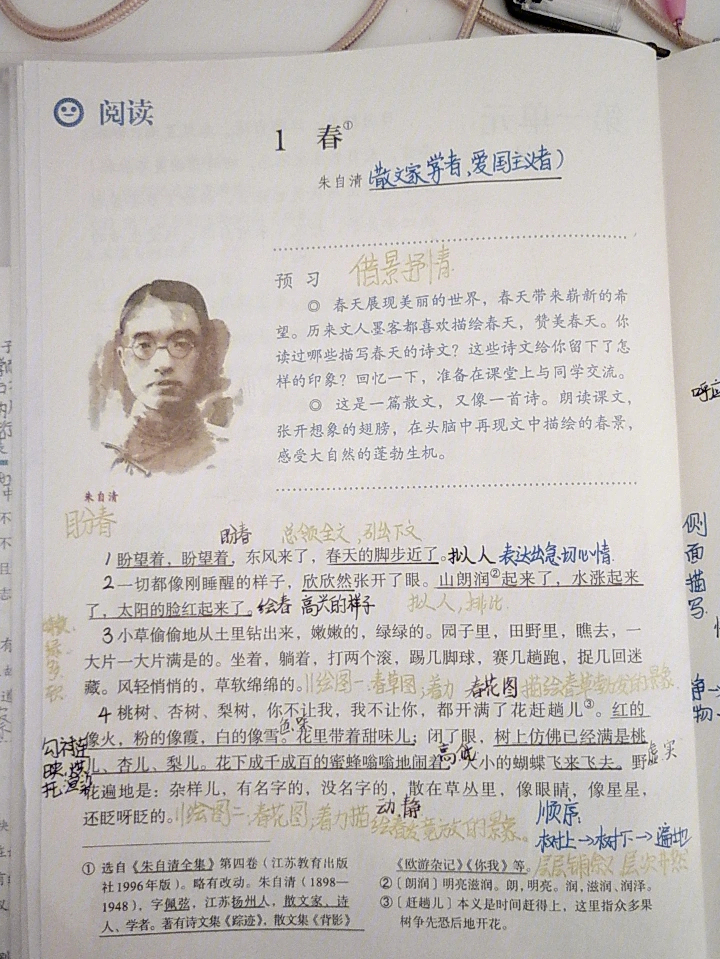 阅读
1 春①
朱自清(散文家,学者,爱国主义者)
预 习 借景抒情
◎ 春天展现美丽的世界,春天带来崭新的希
望。历来文人墨客都喜欢描绘春天,赞美春天。你
读过哪些描写春天的诗文?这些诗文给你留下了怎
样的印象?回忆一下,准备在课堂上与同学交流。
◎ 这是一篇散文,又像一首诗。朗读课文,
张开想象的翅膀,在头脑中再现文中描绘的春景,
感受大自然的蓬勃生机。
朱自清
盼春
盼春 总领全文,引出下文
1 盼望着,盼望着,东风来了,春天的脚步近了。拟人 表达出急切心情
2 一切都像刚睡醒的样子,欣欣然张开了眼。山朗润②起来了,水涨起来
了,太阳的脸红起来了。绘春 高兴的样子 拟人,排比
3 小草偷偷地从土里钻出来,嫩嫩的,绿绿的。园子里,田野里,瞧去,一
大片一大片满是的。坐着,躺着,打两个滚,踢几脚球,赛几趟跑,捉几回迷
藏。风轻悄悄的,草软绵绵的。‖绘图一:春草图;着力 春花图 描绘春草勃发的景象
4 桃树、杏树、梨树,你不让我,我不让你,都开满了花赶趟儿③。红的
色彩
像火,粉的像霞,白的像雪。花里带着甜味儿;闭了眼,树上仿佛已经满是桃
儿、杏儿、梨儿。花下成千成百的蜜蜂嗡嗡地闹着,大小的蝴蝶飞来飞去。野
高低
虚实
花遍地是:杂样儿,有名字的,没名字的,散在草丛里,像眼睛,像星星,
还眨呀眨的。‖绘图二:春花图;着力描绘春花竞放的景象。
动静
顺序:
树上→树下→遍地
① 选自《朱自清全集》第四卷(江苏教育出版
社1996年版)。略有改动。朱自清(1898—
1948),字佩弦,江苏扬州人,散文家、诗
人、学者。著有诗文集《踪迹》,散文集《背影》
《欧游杂记》《你我》等。
②〔朗润〕明亮滋润。朗,明亮。润,滋润、润泽。
③〔赶趟儿〕本义是时间赶得上,这里指众多果
树争先恐后地开花。
侧
面
描
写